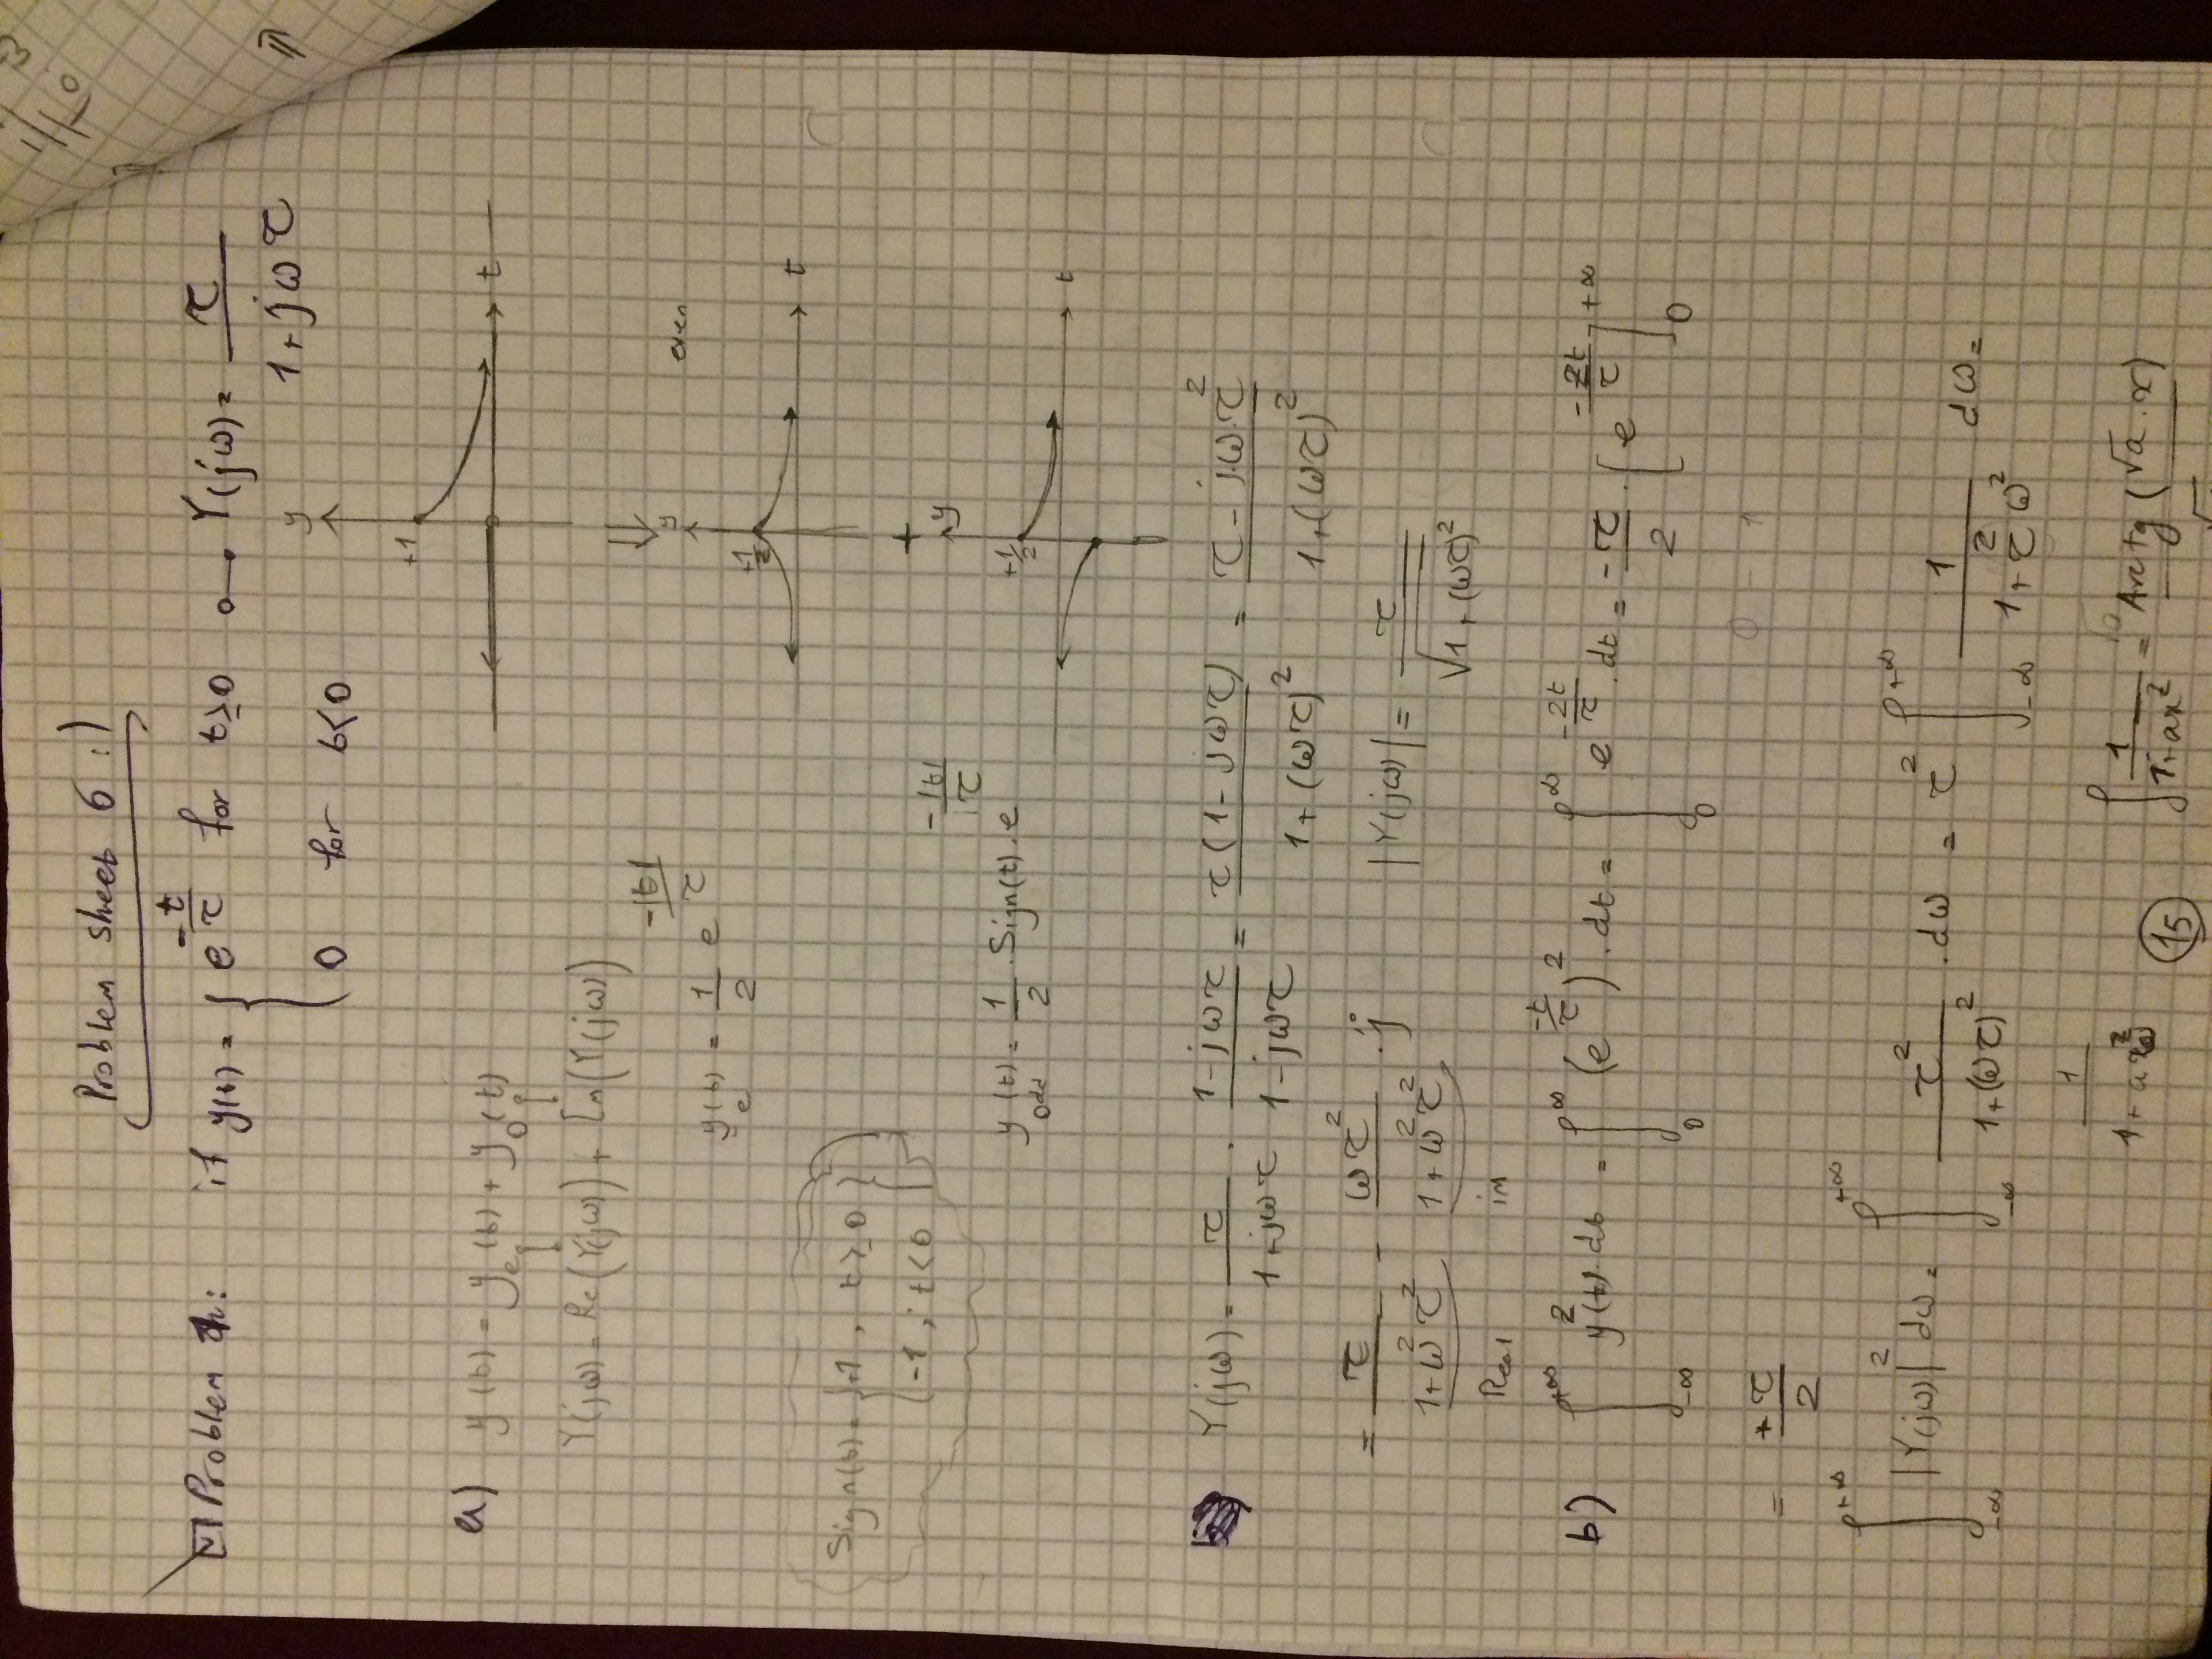 Problem sheet 6 :)
Problem 1: if y(t) = { e^(-t/τ) for t ≥ 0 ○—● Y(jω) = τ / (1 + jωτ)
0 for t < 0
y
+1
t
a) y(t) = y_e(t) + y_o(t)
Y(jω) = Re(Y(jω)) + Im(Y(jω))
⇓
y
even
y_e(t) = 1/2 e^(-|t|/τ)
+1/2
t
Sign(t) = { +1 , t ≥ 0
-1 , t < 0 }
+
y
y_odd(t) = 1/2 . Sign(t) . e^(-|t|/τ)
+1/2
t
Y(jω) = τ/(1+jωτ) . (1-jωτ)/(1-jωτ) = τ(1-jωτ)/(1+(ωτ)²) = (τ - j.ω.τ²)/(1+(ωτ)²)
= τ/(1+ω²τ²) - ωτ²/(1+ω²τ²) . j |Y(jω)| = τ/√(1+(ωτ)²)
Real im
b) ∫_{-∞}^{+∞} y²(t).dt = ∫_0^∞ (e^(-t/τ))² . dt = ∫_0^∞ e^(-2t/τ) . dt = -τ/2 . [e^(-2t/τ)]_0^{+∞}
0 - 1
= +τ/2
∫_{-∞}^{+∞} |Y(jω)|² dω = ∫_{-∞}^{+∞} τ²/(1+(ωτ)²) . dω = τ² ∫_{-∞}^{+∞} 1/(1+τ²ω²) dω =
1/(1+ax²) ∫ 1/(1+ax²) = Arctg (√a . x)
15